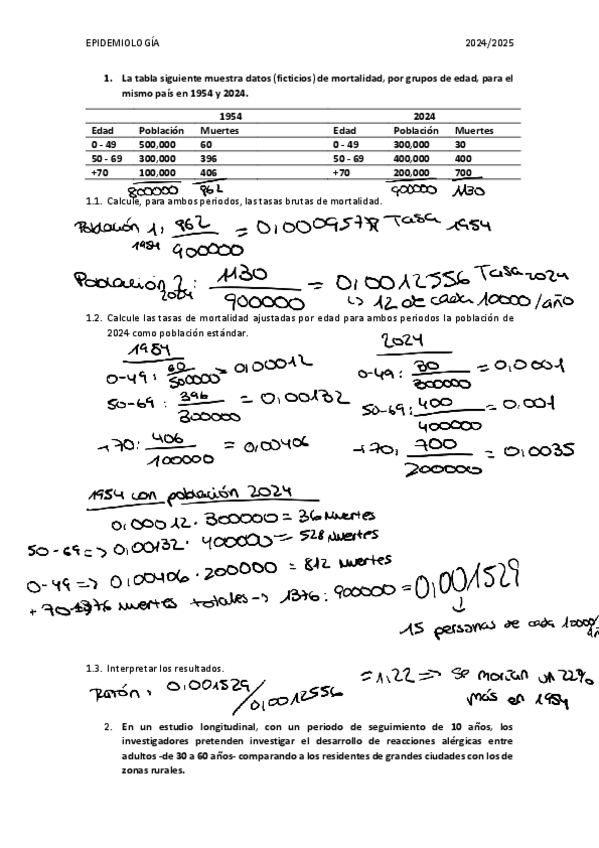 EPIDEMIOLOGÍA 2024/2025
1. La tabla siguiente muestra datos (ficticios) de mortalidad, por grupos de edad, para el
mismo país en 1954 y 2024.
1954 2024
Edad Población Muertes Edad Población Muertes
0 - 49 500,000 60 0 - 49 300,000 30
50 - 69 300,000 396 50 - 69 400,000 400
+70 100,000 406 +70 200,000 700
800000 962 900000 1130
1.1. Calcule, para ambos periodos, las tasas brutas de mortalidad.
Población 1: 862 = Tasa 1954
1954 900000
Población 2: 1130 = 0,0012556 Tasa 2024
2024 900000 ↳ 12 de cada 10000/año
1.2. Calcule las tasas de mortalidad ajustadas por edad para ambos periodos la población de
2024 como población estándar.
1954 2024
0-49: 60 = 0,00012 0-49: 30 = 0,0001
500000 300000
50-69: 396 = 0,00132 50-69: 400 = 0,001
300000 400000
+70: 406 = 0,00406 +70: 700 = 0,0035
100000 200000
1954 con población 2024
0,00012 · 300000 = 36 muertes
50-69 => 0,00132 · 400000 = 528 muertes
0-49 => 0,00406 · 200000 = 812 muertes
+70 1376 muertes totales -> 1376 : 900000 = 0,001529
↓
15 personas de cada 10000/
1.3. Interpretar los resultados.
Razón: 0,001529/0,0012556 = 1,22 => se morían un 22%
más en 1954
2. En un estudio longitudinal, con un periodo de seguimiento de 10 años, los
investigadores pretenden investigar el desarrollo de reacciones alérgicas entre
adultos -de 30 a 60 años- comparando a los residentes de grandes ciudades con los de
zonas rurales.